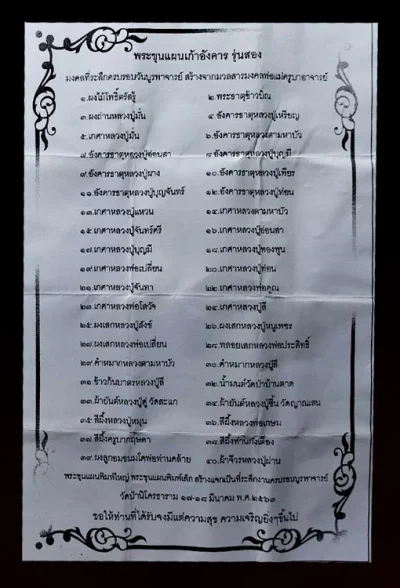 พระขุนแผนเถ้าอังคาร รุ่นสอง
มงคลที่ระลึกครบรอบวันบูรพาจารย์ สร้างจากมวลสารมงคลพ่อแม่ครูบาอาจารย์
๑.ผงไม้โพธิ์ตรัสรู้ ๒.พระธาตุข้าวบิณ
๓.ผงถ่านหลวงปู่มั่น ๔.อังคารธาตุหลวงปู่เหรียญ
๕.เกศาหลวงปู่มั่น ๖.อังคารธาตุหลวงตามหาบัว
๗.อังคารธาตุหลวงปู่อ่อนสา ๘.อังคารธาตุหลวงปู่บุญมี
๙.อังคารธาตุหลวงปู่ผาง ๑๐.อังคารธาตุหลวงปู่เพียร
๑๑.อังคารธาตุหลวงปู่บุญจันทร์ ๑๒.อังคารธาตุหลวงปู่ท่อน
๑๓.เกศาหลวงปู่แหวน ๑๔.เกศาหลวงตามหาบัว
๑๕.เกศาหลวงปู่จันทร์ศรี ๑๖.เกศาหลวงปู่อ่อนสา
๑๗.เกศาหลวงปู่บุญมี ๑๘.เกศาหลวงปู่ทองพูน
๑๙.เกศาหลวงพ่อเปลี่ยน ๒๐.เกศาหลวงปู่ท่อน
๒๑.เกศาหลวงปู่จันทา ๒๒.เกศาหลวงพ่อคูณ
๒๓.เกศาหลวงพ่อโสวัจ ๒๔.เกศาหลวงปู่ลี
๒๕.ผงเสกหลวงปู่สังข์ ๒๖.ผงเสกหลวงปู่หนูเพชร
๒๗.ผงเสกหลวงพ่อเปลี่ยน ๒๘.พลอยเสกหลวงพ่อประสิทธิ์
๒๙.คำหมากหลวงตามหาบัว ๓๐.คำหมากหลวงปู่ลี
๓๑.ข้าวก้นบาตรหลวงปู่ลี ๓๒.น้ำมนต์วัดป่าบ้านตาด
๓๓.ผ้ายันต์หลวงปู่ดู่ วัดสะแก ๓๔.ผ้ายันต์หลวงปู่ชื้น วัดญาณเสน
๓๕.สีผึ้งหลวงปู่หมุน ๓๖.สีผึ้งหลวงพ่อเกษม
๓๗.สีผึ้งครูบากฤษดา ๓๘.สีผึ้งท่านก๋งเตื่อง
๓๙.ผงลูกอมชนมโคพ่อท่านคล้าย ๔๐.ผ้าจีวรหลวงปู่ผ่าน
พระขุนแผนพิมพ์ใหญ่ พระขุนแผนพิมพ์เล็ก สร้างแจกเป็นที่ระลึกงานครบรอบบูรพาจารย์
วัดป่านิโครธาราม ๑๗-๑๘ มีนาคม พ.ศ.๒๕๖๓
ขอให้ท่านที่ได้รับจงมีแต่ความสุข ความเจริญยิ่งๆขึ้นไป